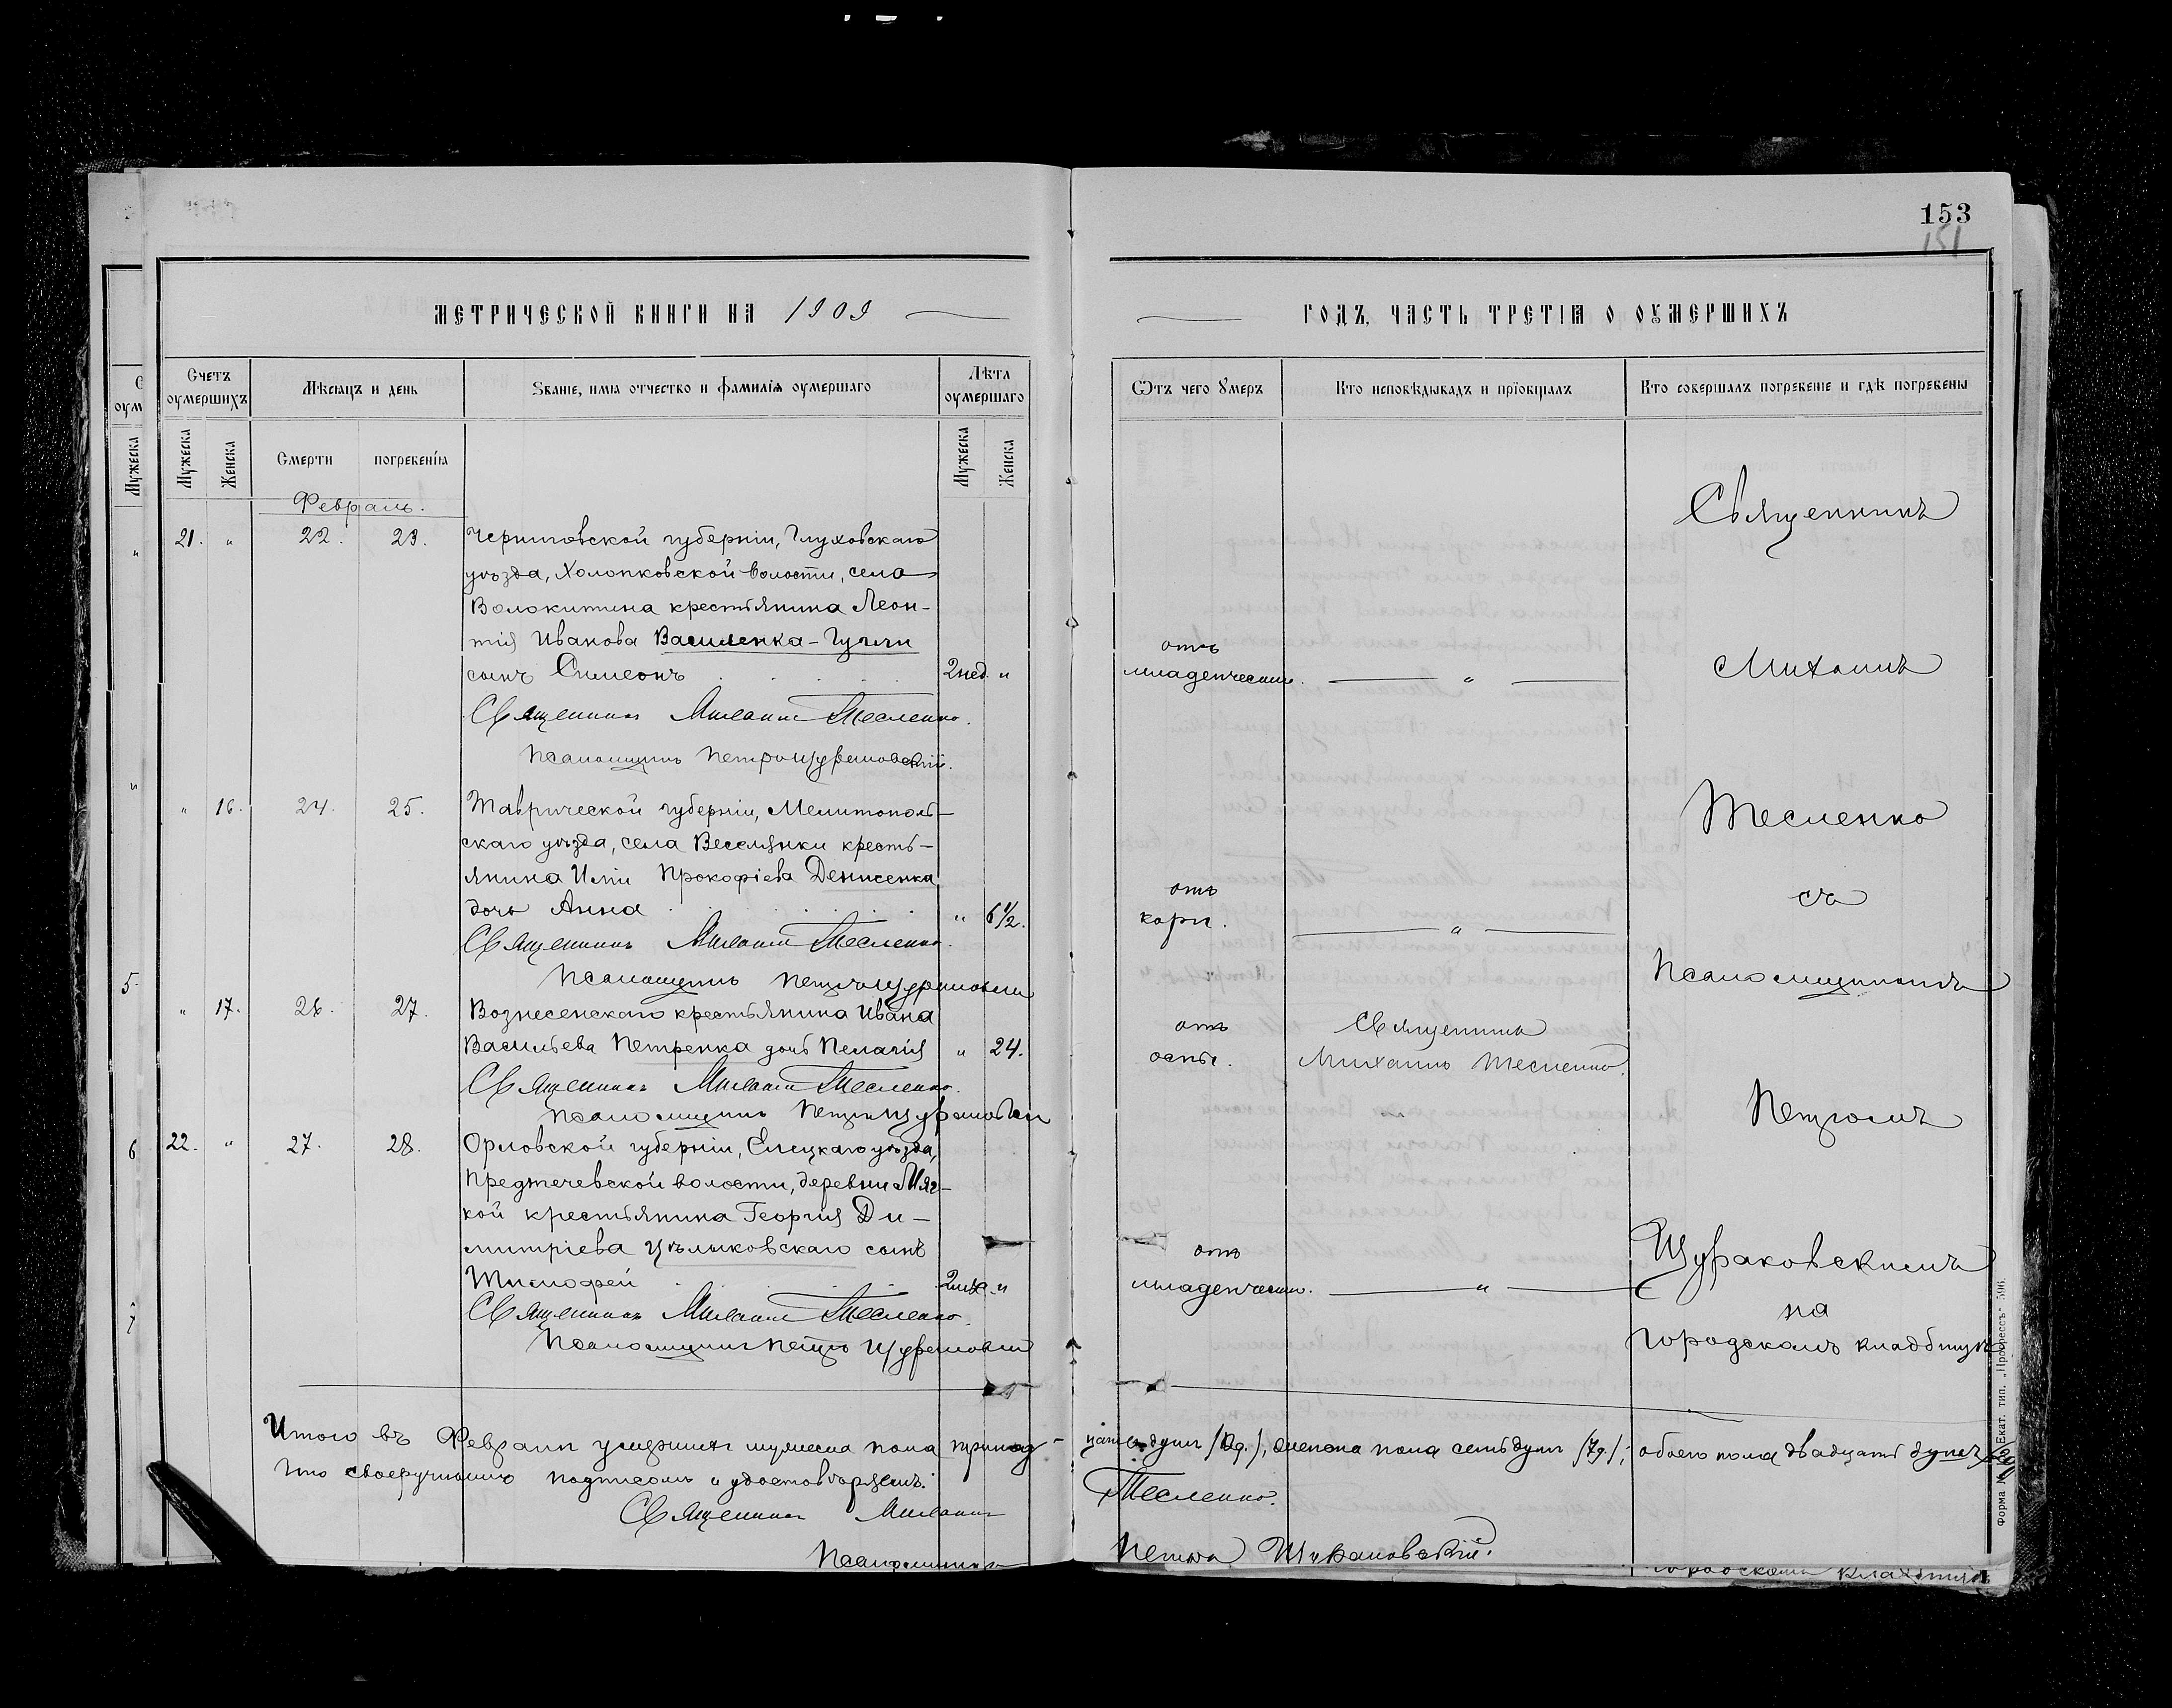 153
151
МЕТРИЧЕСКОЙ КНИГИ НА 1909 ГОДЪ, ЧАСТЬ ТРЕТІЯ О ОУМЕРШИХЪ
Счетъ оумершихъ
Мѣсяцъ и день
Званіе, имя отчество и фамилія оумершаго
Лѣта оумершаго
Ѿтъ чего Умеръ
Кто исповѣдывалъ и пріобщалъ
Кто совершалъ погребеніе и гдѣ погребены
Мужеска
Женска
Смерти
погребенія
Мужеска
Женска
Февраль.
21. " 22. 23. Черниговской губерніи, Глуховскаго
уѣзда, Холопковской волости, села
Волокитина крестьянина Леон-
тія Иванова Василенка-Гугли
сынъ Симеонъ 2 нед. "
отъ
младенческой. "
Священникъ Михаилъ Тесленко.
Псаломщикъ Петръ Щураковскій.
" 16. 24. 25. Таврической губерніи, Мелитополь-
скаго уѣзда, села Веселянки кресть-
янина Иліи Прокофіева Денисенка
дочь Анна " 6 1/2.
отъ
кори. "
Священникъ Михаилъ Тесленко.
Псаломщикъ Петръ Щураковскій
" 17. 26. 27. Вознесенскаго крестьянина Ивана
Васильева Петренка дочь Пелагія " 24.
отъ
оспы.
Священникъ
Михаилъ Тесленко.
Священникъ Михаилъ Тесленко.
Псаломщикъ Петръ Щураковскій
22. " 27. 28. Орловской губерніи, Елецкаго уѣзда,
Предтечевской волости, деревни Мяг-
кой крестьянина Георгія Ди-
митріева Цѣлыковскаго сынъ
Тимофей 2 мѣс. "
отъ
младенческой. "
Священникъ Михаилъ Тесленко.
Псаломщикъ Петръ Щураковскій
Священникъ
Михаилъ
Тесленко
съ
Псаломщикомъ
Петромъ
Щураковскимъ
на
Городскомъ кладбищѣ
Итого въ Февралѣ умершихъ мужеска пола тринад-
цать душъ /13 д./, женска пола семь душъ /7 д./, обоего пола двадцать душъ
что своеручнымъ подписомъ и удостовѣряемъ:
Священникъ Михаилъ Тесленко.
Псаломщикъ Петръ Щураковскій.
Екат. тип. „Прогрессъ" 596.
Форма №